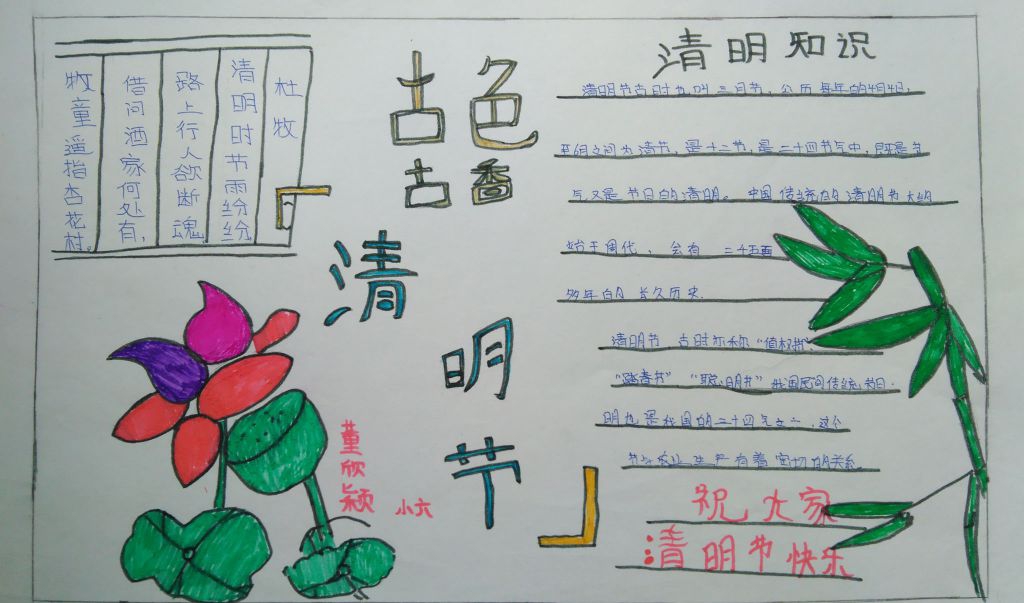 杜牧
清明时节雨纷纷
路上行人欲断魂
借问酒家何处有,
牧童遥指杏花村。
古色
古香
清
明
节
董欣颖 小六
清明知识
清明节古时也叫三月节,公历每年的4月4日
至6日之间为清节,是十二节,是二十四节气中,既是节
气又是节日的清明。中国传统的清明节大约
始于周代,会有二千五百
多年的长久历史.
清明节 古时亦称
"踏青节""聪明节"我国民间传统节日.
明也是我国的二十四气之一,这个
节与农业生产有着密切的关系
祝大家
清明节快乐